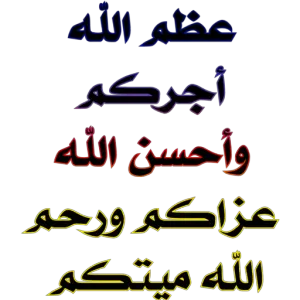 عظم الله
أجركم
وأحسن الله
عزاكم ورحم
الله ميتكم